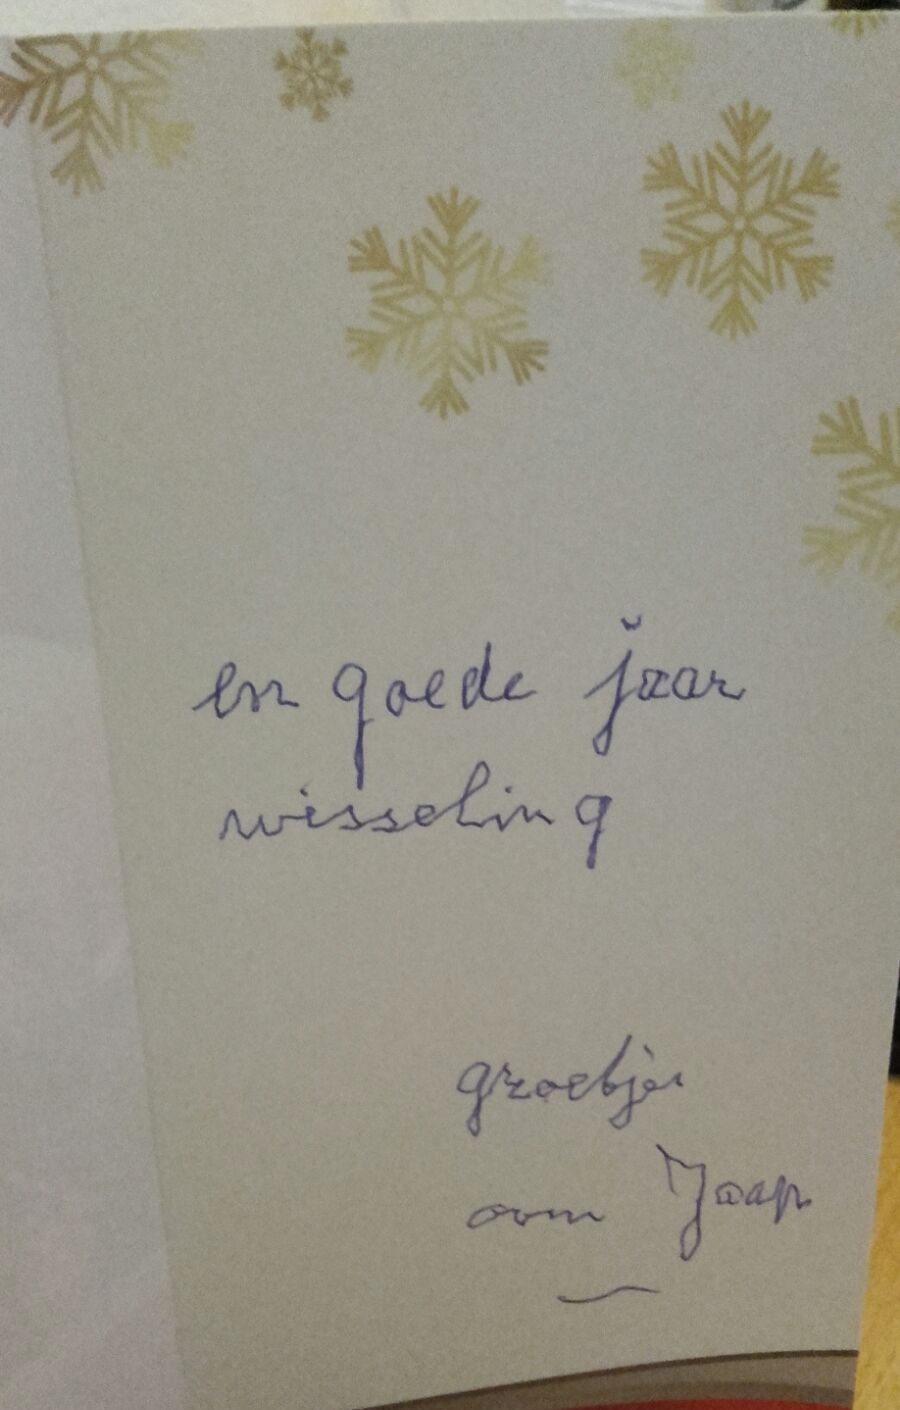 en goede jaar
wisseling
groetjes
oom Jaap